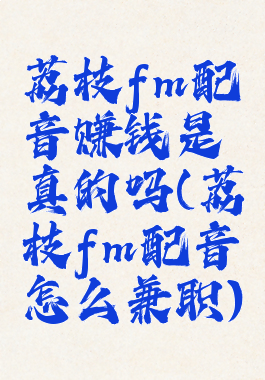 荔枝fm配
音赚钱是
真的吗(荔
枝fm配音
怎么兼职)